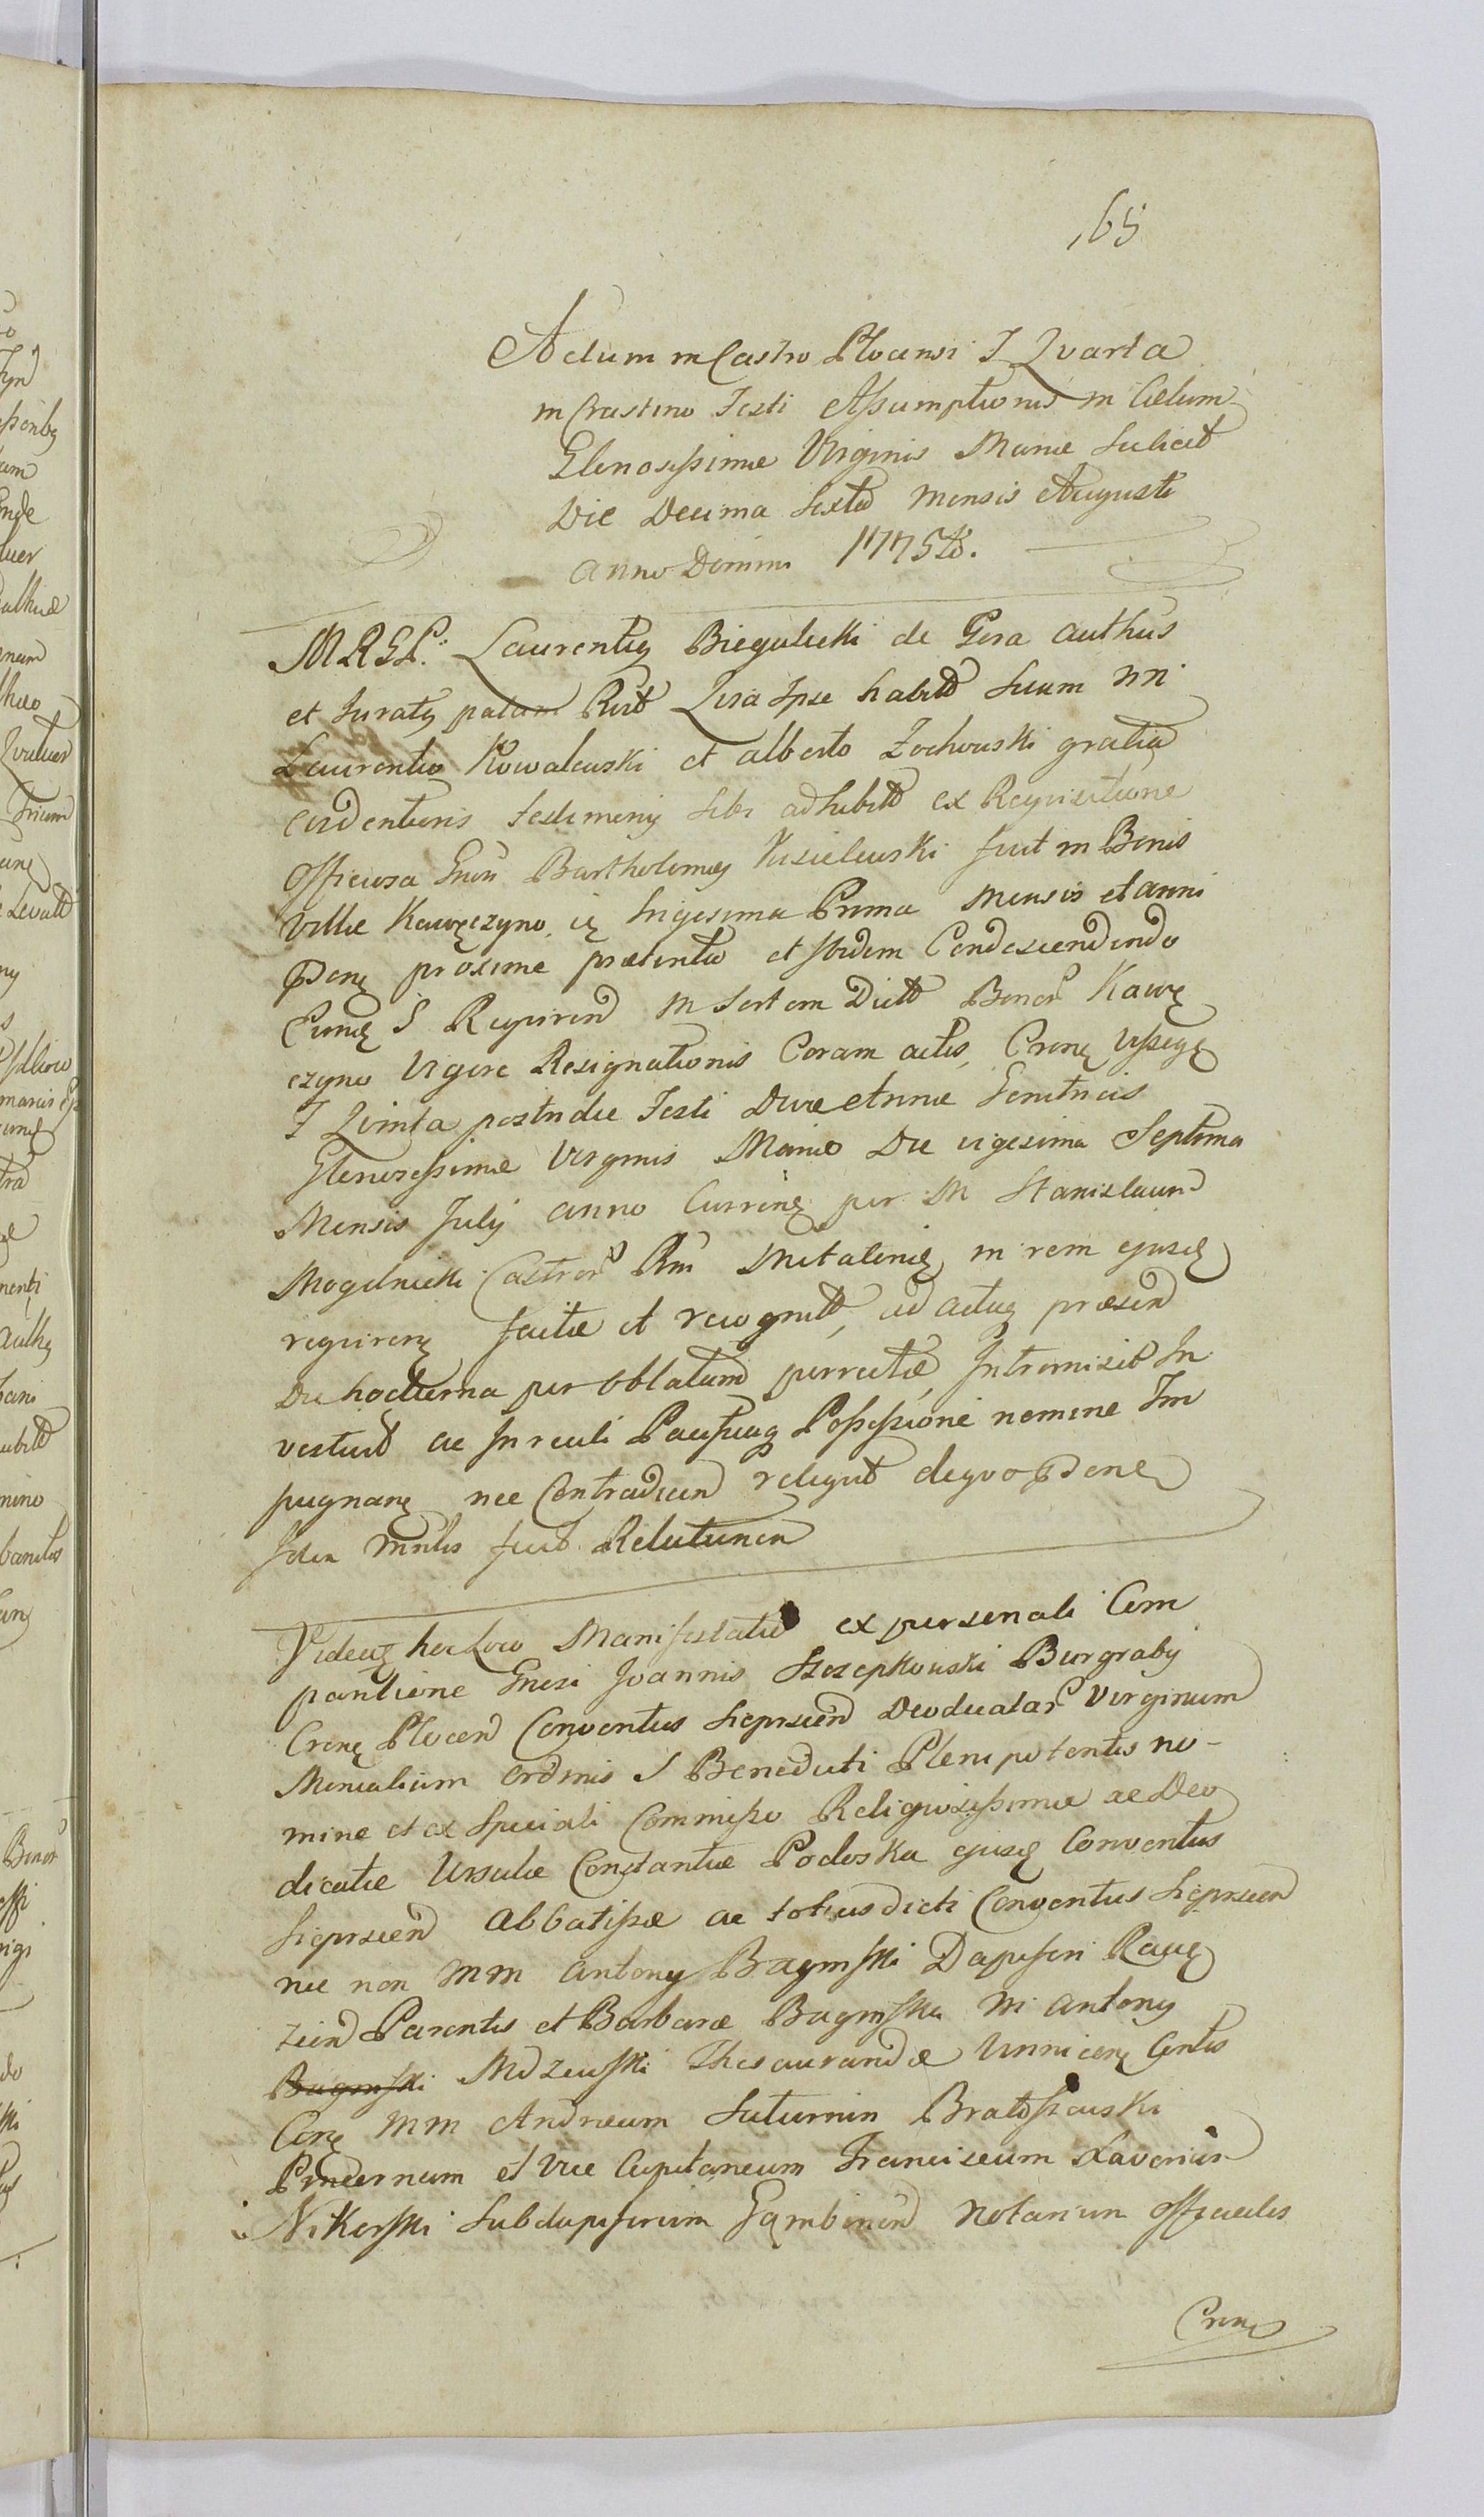 165
Actum in Castro Plocensi F Qvarta
in Crastino Festi Assumptionis in Cælum
Gloriosissimæ Virginis Mariæ Scilicet
Die Decima Sexta Mensis Augusti
Anno Domini 1775to.
MRGL: Laurentig Biegalicki de Gora authus
et Juratg palam Recit Qvia Ipse habitt Secum NN
Laurentio Kowalewski et alberto Zochowski gratia
evidentioris testimonij sibi adhibitt ex Reqvisitione
Officiosa Gnsi Bartholomei Kisielewski fuit in Bonis
Villæ Kawęczyno, Prima Mensis et anni
proxime præterito et Ibidem Condescendendo
in Sortem Dictt Bonor Kawę
czyno Vigore Resignationis Coram actis,
F Qvinta postridie Festi Divæ Annæ Genitricis
Gloriosissimæ Virginis Mariæ Die vigesima Septima
Mensis Julij anno Curren per M Stanislaum
Mogilnicki in rem ejusd
reqviren factæ et recognitt, ad actus præsen
Die hodierna per Oblatam porrectæ, Intromisit In
vestivit ac In reali Possessione nemine Im
pugnan nec Contradicen reliqvit de qvo
Idem Mnlis fecit Relationem
Videatg hoc Loco Manifestatio ex personali Com
paritione Gnsi Joannis Szczepkowski Burgrabij
Plocen Conventus Sieprscen Deodicatar Virginum
Monialium Ordinis S Benedicti Plenipotentis no-
mine et ex Speciali Commisso Religiosissimæ ac Deo
dicatæ Ursulæ Constantiæ Podoska ejusd Conventus
Sieprscen Abbatissæ ac totius dicti Conventus Sieprscen
nec non MM Antonij Bagiński Dapiferi Rawę
Parentis et Barbaræ Bagińska M Antonij
Bagiński Mdzewski Thesaurandæ
MM Andream Saturnin Bratoszewski
Pincernam et Vice Capitaneum Franciscum Xaverium
Nikorski Subdapiferum Gąmbinen Notarium Officiales